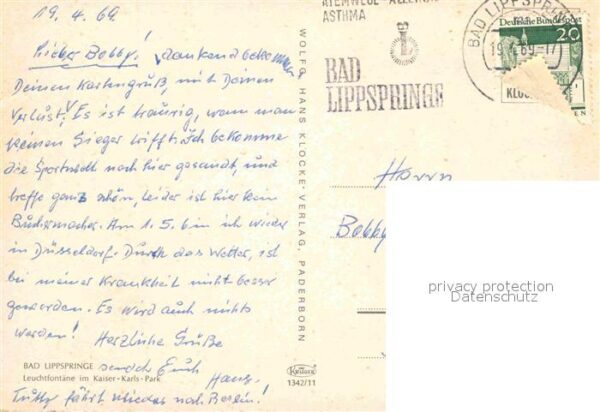 19.4.69
Lieber Bobby! dankend bekommen
Deinen Kartengruß, mit Deinen
Verlust! Es ist traurig, wenn man
keinen Sieger trifft. Ich bekomme
die Sportwelt nach hier gesandt, und
treffe ganz schön, leider ist hier kein
Buchmacher. Am 1.5. bin ich wieder
in Düsseldorf. Durch das Wetter, ist
bei meiner Krankheit nicht besser
geworden. Es wird auch nichts
werden! Herzliche Grüße
sendet Euch
Hans.
fährt wieder nach Berlin!
BAD LIPPSPRINGE
Leuchtfontäne im Kaiser-Karls-Park
WOLFG. HANS KLOCKE VERLAG, PADERBORN
Krüger
1342/11
ATEMWEGE-ALLERGIE
ASTHMA
BAD
LIPPSPRINGE
BAD LIPPSPRINGE
19.4.69-17
Deutsche Bundespost
20
KLO
EN
Herrn
Bobby
privacy protection
Datenschutz